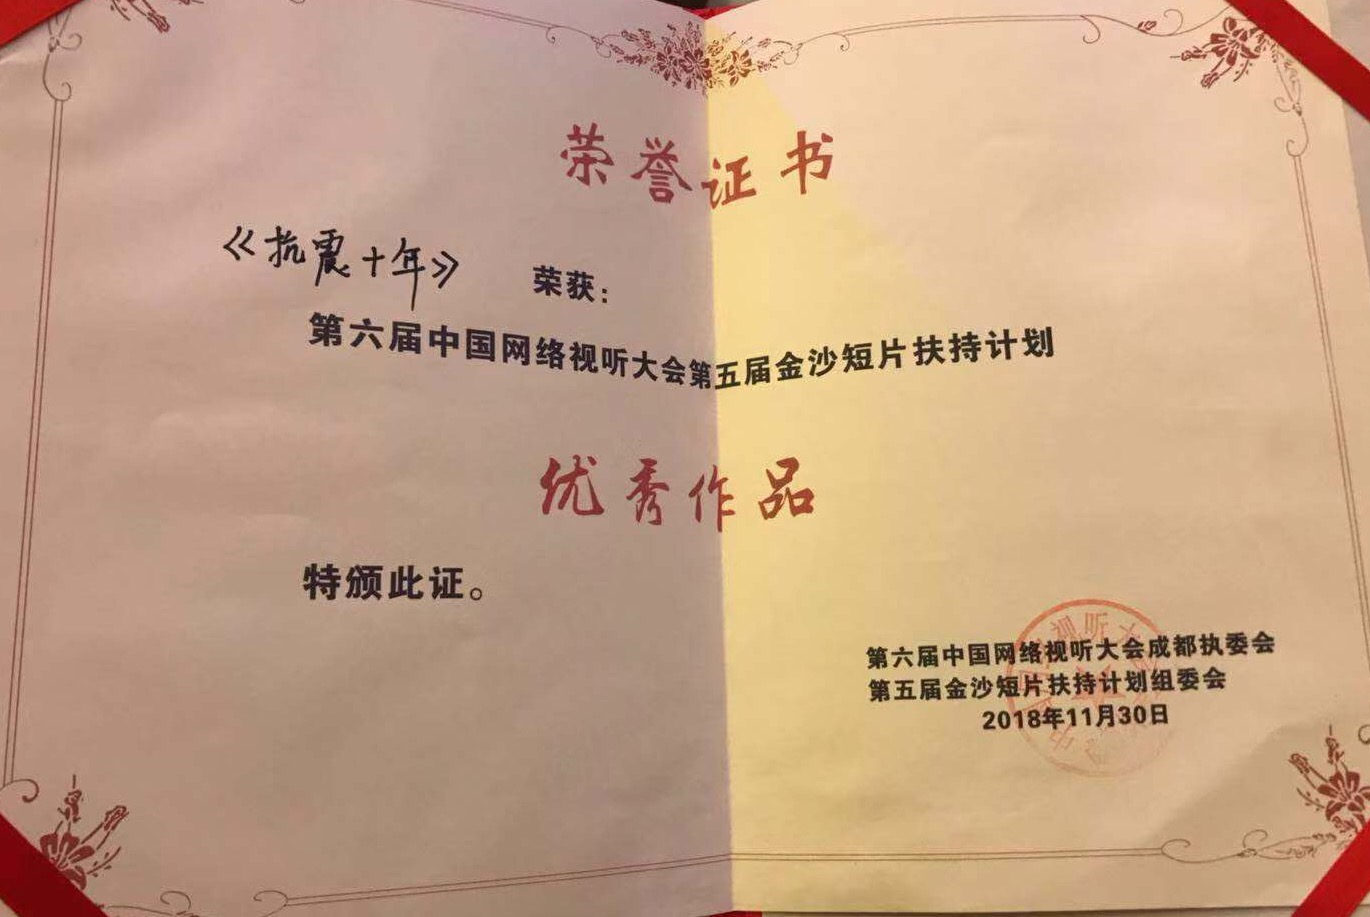 荣誉证书
《抗震十年》 荣获：
第六届中国网络视听大会第五届金沙短片扶持计划
优秀作品
特颁此证。
第六届中国网络视听大会成都执委会
第五届金沙短片扶持计划组委会
2018年11月30日